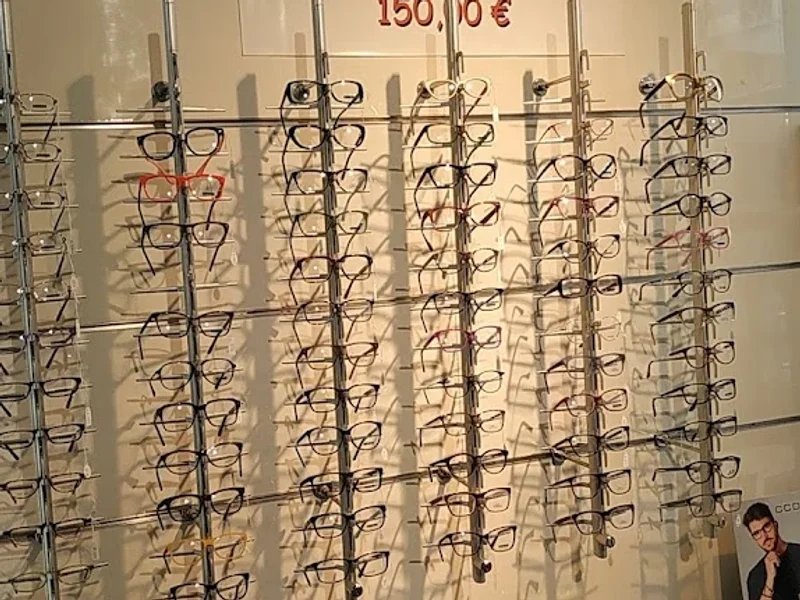 150,00 €
CCD